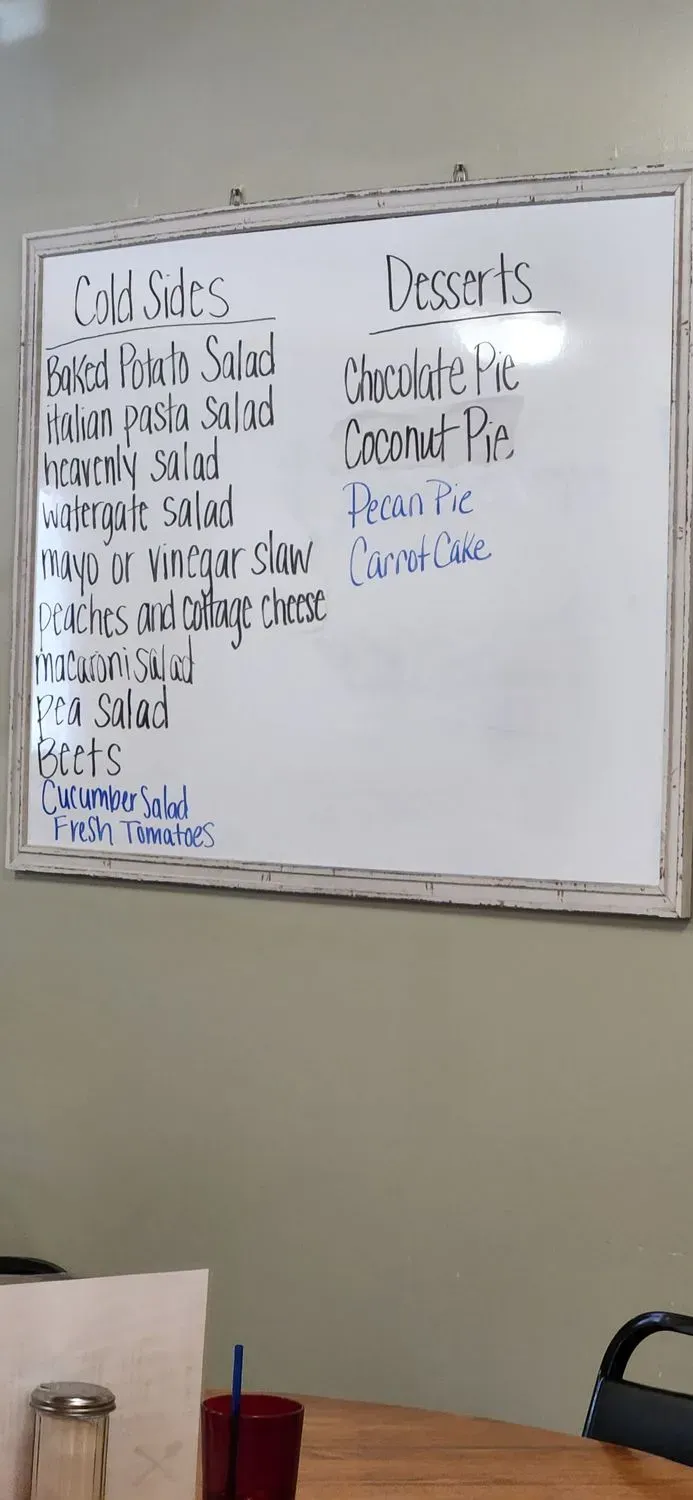 Cold Sides
Baked Potato Salad
italian pasta Salad
heavenly salad
watergate salad
mayo or vinegar slaw
peaches and cottage cheese
macaroni salad
pea salad
Beets
Cucumber Salad
Fresh Tomatoes
Desserts
Chocolate Pie
Coconut Pie
Pecan Pie
Carrot Cake